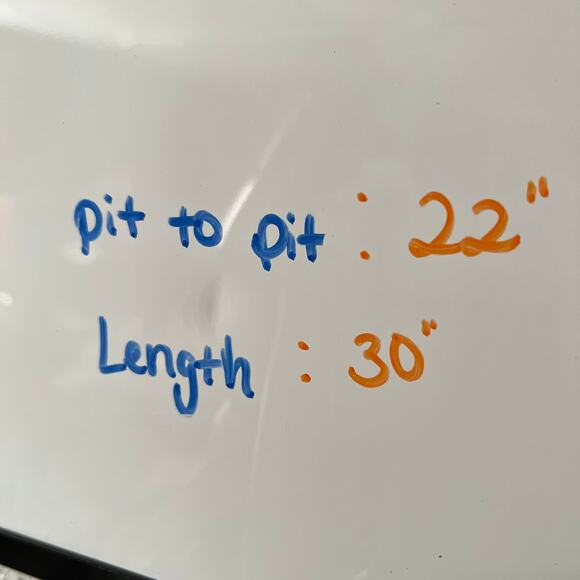 pit to pit : 22"
Length : 30"